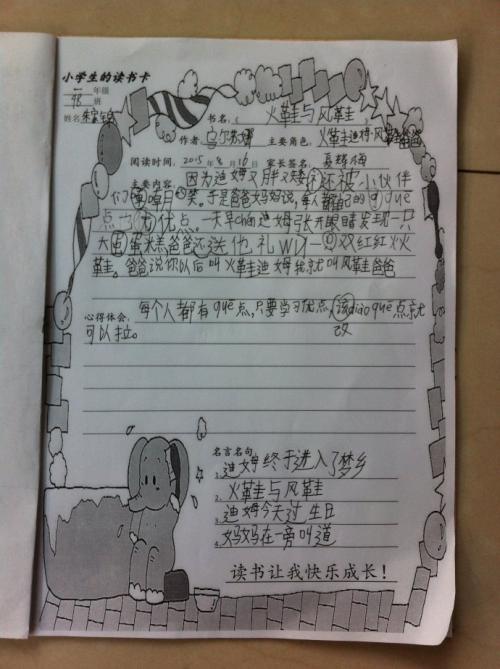 小学生的读书卡
一 年级
班
姓名
书名:《 火鞋与风鞋 》
作者 乌尔苏娜 主要角色: 火鞋迪姆·风鞋爸爸
阅读时间: 2015年8月16日 家长签名:
主要内容: 因为迪姆又胖又矮 还被小伙伴
们 笑。于是爸爸妈妈说,每人都 自己的 quē
点 优点。一天早chén迪姆张开眼睛发现一只
大 蛋糕爸爸还送他礼Wù一 双红红火火
鞋。爸爸说你以后叫火鞋迪姆我就叫风鞋爸爸
心得体会: 每个人都有quē点,只要学习优点, diào quē点就
改
可以拉。
名言名句
1. 迪姆终于进入了梦乡
2. 火鞋与风鞋
3. 迪姆今天过生日
4. 妈妈在一旁叫道
读书让我快乐成长!